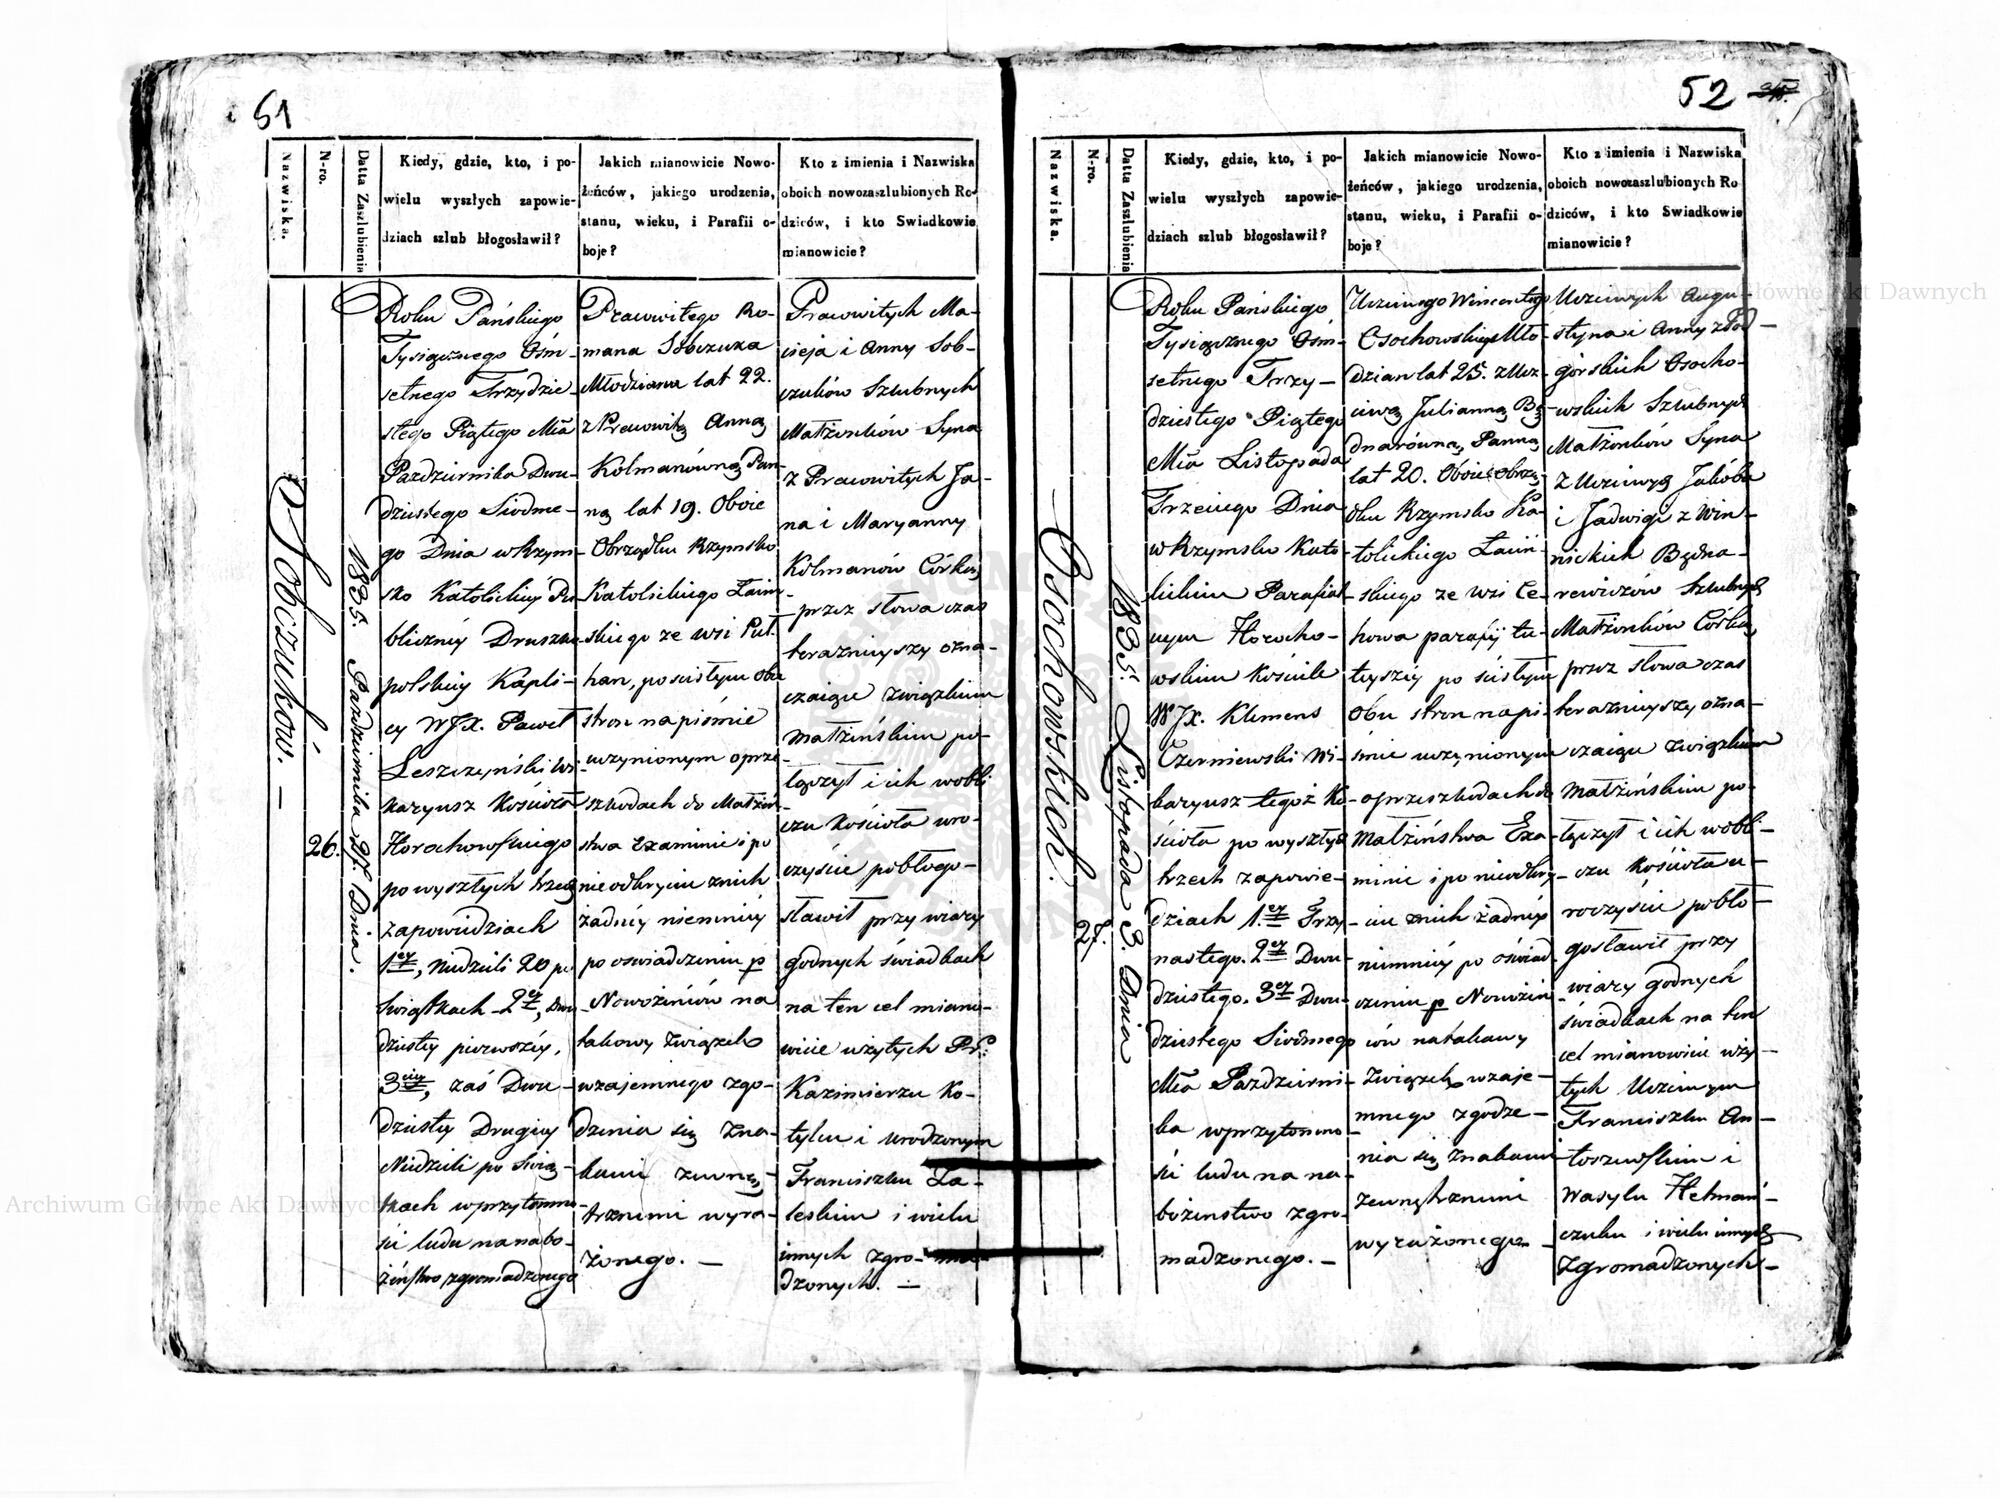 51
Nazwiska.
N-ro.
Datta Zaszlubienia
Kiedy, gdzie, kto, i po-
wielu wyszłych zapowie-
dziach szlub błogosławił?
Jakich mianowicie Nowo-
żeńców, jakiego urodzenia,
stanu, wieku, i Parafii o-
boje?
Kto z imienia i Nazwiska
oboich nowozaszlubionych Ro-
dziców, i kto Swiadkowie
mianowicie?
Sobczuków. —
26.
1835. Pazdziernika 27. Dnia.
Roku Pańskiego
Tysiącznego Ośm-
setnego Trzydzie
stego Piątego Mća
Pazdziernika Dwu-
dziestego Siodme-
go Dnia w Rzym-
sko Katolickiey Pu
bliczney Druszko
polskiey Kapli-
cy WJX. Paweł
Leszczyński Wi-
karyusz Kościoła
Horochowskiego
po wyszłych trzech
zapowiedziach
1ey, Niedzieli 20 po
Swiątkach 2ey, Dwu
dziestey pierwszéy,
3ciey, zaś Dwu-
dziestey Drugiey
Niedzieli po Swią-
tkach w przytomno
ści ludu na nabo-
żeństwo zgromadzonego
Pracowitego Ro-
mana Sobczuka
Młodziana lat 22.
z Pracowitą Anną
Kolmanówną Pan-
ną lat 19. Oboie
Obrządku Rzymsko
Katolickiego Łaciń-
skiego ze wsi Pul.
han, po ścisłym Obu
stron na piśmie
uczynionym o prze-
szkodach do Małżeń-
stwa Examinie i po
nieodkryciu z nich
żadnéy niemniéy
po oświadczeniu p
Nowożeńców na
takowy związek
wzajemnego zgo-
dzenia się zna-
kami zewnę-
trznemi wyra-
żonego. —
Pracowitych Ma-
cieja i Anny Sob-
czuków Szlubnych
Małżonków Syna
z Pracowitych Ja-
na i Maryanny
Kolmanów Córką
przez słowa czas
teraznieyszy ozna-
czaiące związkiem
małżeńskim po-
łączył i ich w obli
czu Kościoła uro-
czyście pobłogo-
sławił przy wiary
godnych świadkach
na ten cel miano-
wicie użytych Pr:
Kazimierzu Ko-
tyku i Urodzonym
Franciszku Za-
leskim i wielu
innych zgro-ma-
dzonych. —
52
Nazwiska.
N-ro.
Datta Zaszlubienia
Kiedy, gdzie, kto, i po-
wielu wyszłych zapowie-
dziach szlub błogosławił?
Jakich mianowicie Nowo-
żeńców, jakiego urodzenia,
stanu, wieku, i Parafii o-
boje?
Kto z imienia i Nazwiska
oboich nowozaszlubionych Ro
dziców, i kto Swiadkowie
mianowicie?
Osochowskich.
27.
1835. Listopada 3. Dnia
Roku Pańskiego
Tysiącznego Ośm-
setnego Trzy-
dziestego Piątego
Mća Listopada
Trzeciego Dnia
w Rzymsko Kato-
lickim Parafial-
nym Horocho-
wskim Kościele
WJX. Klemens
Czerniewski Wi-
karyusz tegoż Ko-
ścioła po wyszłych
trzech zapowie-
dziach 1ey Trzy
nastego. 2ey Dwu-
dziestego. 3ey Dwu-
dziestego Siódmego
Mća Pazdzierni-
ka w przytomno-
ści ludu na na-
bożenstwo zgro-
madzonego. —
Uczciwego Wincentego
Osochowskiego Mło
dzian lat 25. z Ucz-
ciwą Julianną Bę
dnarówną, Panną
lat 20. Oboie Obrzą-
dku Rzymsko Ka-
tolickiego Łaciń-
skiego ze wsi Ce-
howa parafii tu-
teyszéy po ścisłym
Obu stron na pi-
śmie uczynionym
o przeszkodach do
Małżeństwa Exa-
minie i po nieodkry-
ciu z nich żadnéy
niemniéy po oświad-
czeniu p Nowożeń
ców na takowy
związek wzaje-
mnego zgodze-
nia się znakami
zewnętrznemi
wyrażonego —
Uczciwych Augu
styna i Anny z Pod-
górskich Osocho-
wskich Szlubnych
Małżonków Syna
z Uczciwych Jakóba
i Jadwigi z Win-
nickich Będna-
rewiczów Szlubnych
Małżonków Córką,
przez słowa czas
teraznieyszy ozna-
czaiące związkiem
Małżeńskim po-
łączył i ich w obli-
czu Kościoła u-
roczyście pobło-
gosławił przy
wiary godnych
świadkach na ten
cel mianowicie uży-
tych Uczciwym
Franciszku An-
toszewskim i
Wasylu Hetmań-
czuku i wielu innych
Zgromadzonych —
Archiwum Główne Akt Dawnych
Archiwum Główne Akt Dawnych